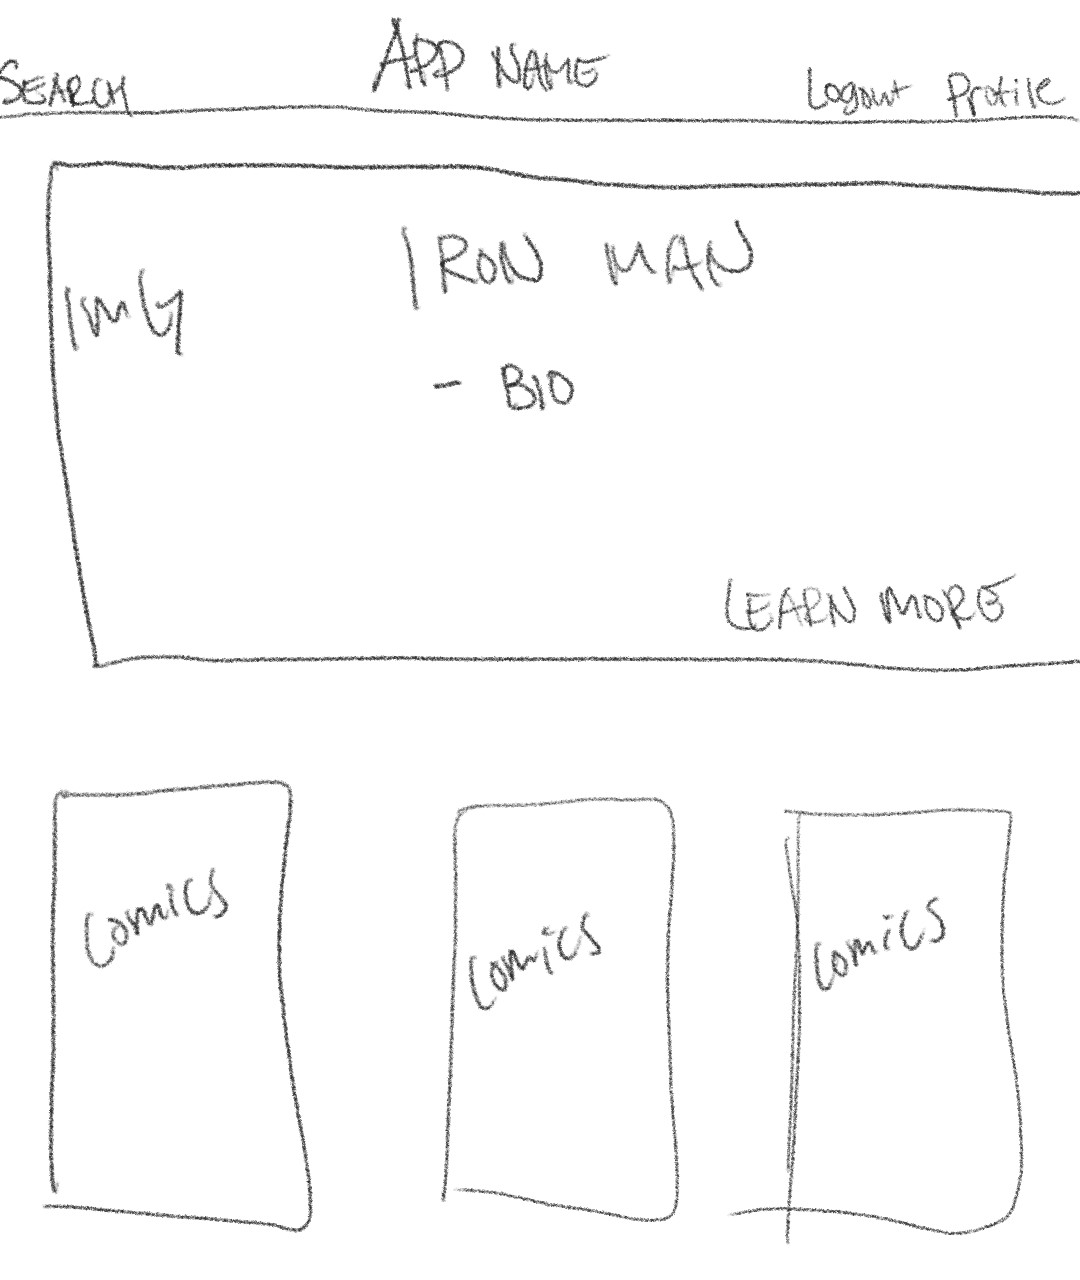 SEARCH APP NAME Logout Profile
IRON MAN
IMG
- BIO
LEARN MORE
Comics Comics Comics